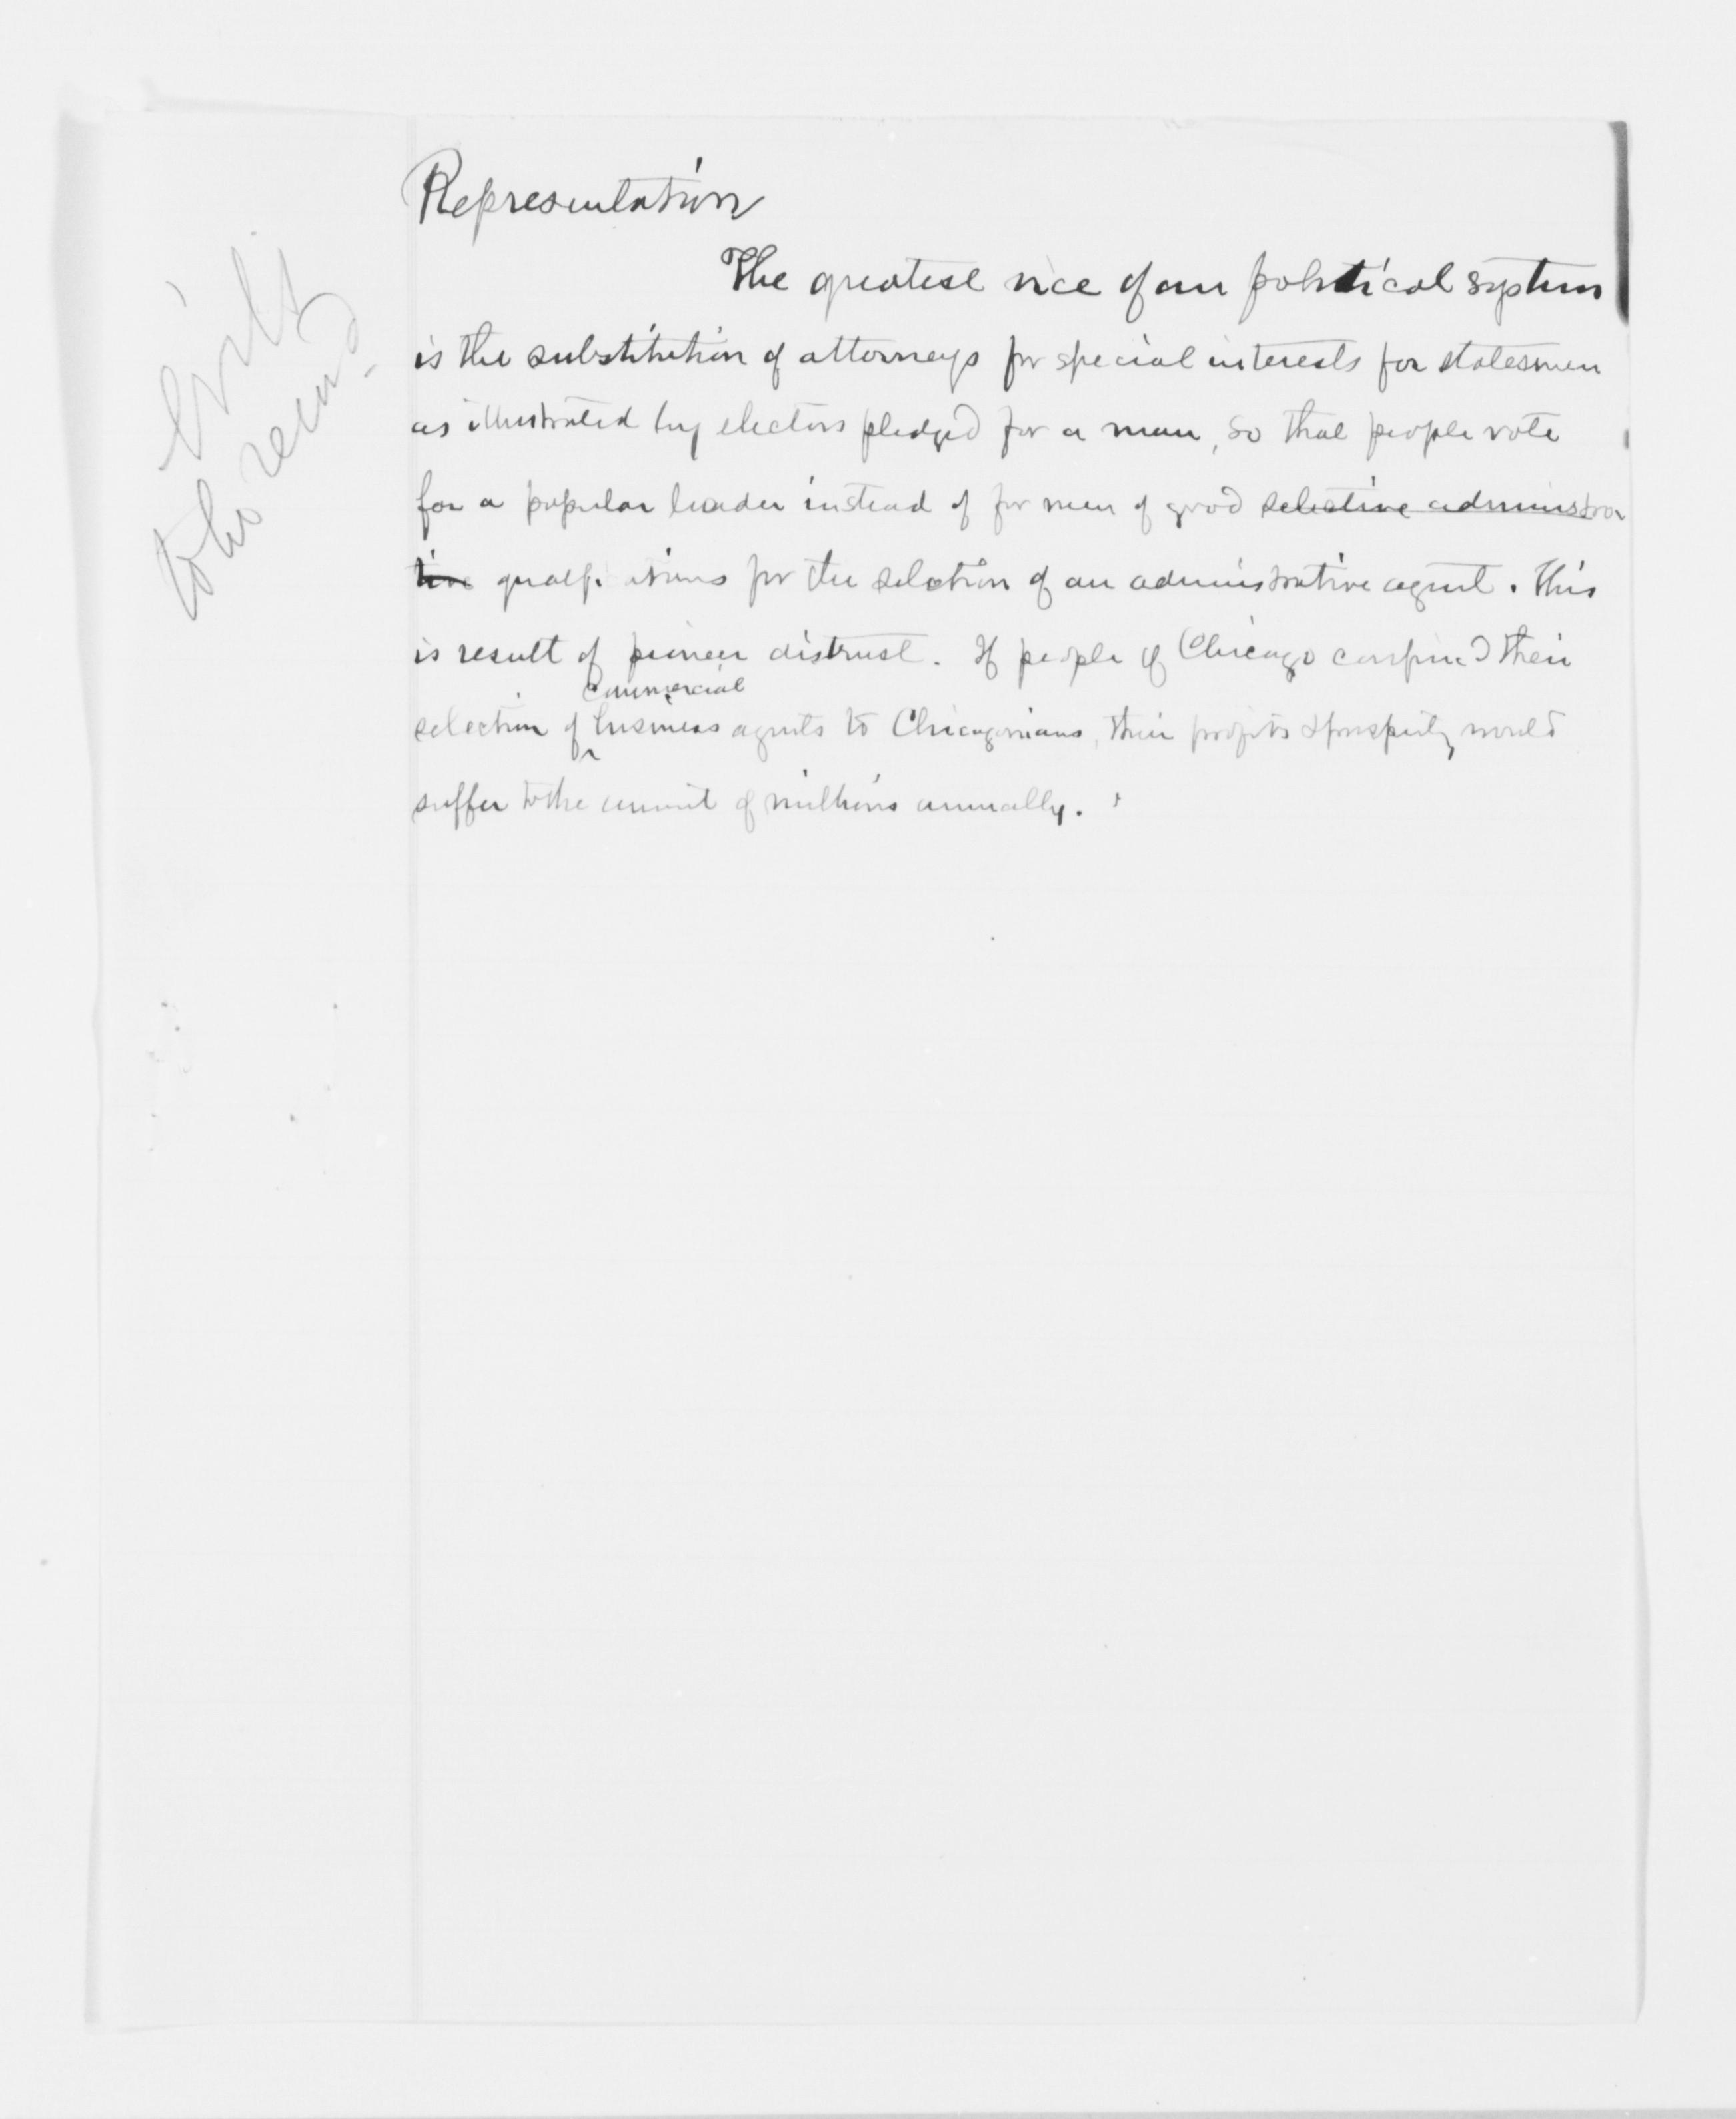 Representation
The greatest vice of our political system
is the substitution of attorneys for special interests for statesmen
as illustrated by electors pledged for a man, so that people vote
for a popular leader instead of for men of good selective administra
tive qualifications for the selection of an administrative agent. This
is result of pioneer distrust. If people of Chicago confined their
commercial
selection of business agents to Chicagonians, their profits & prosperity would
suffer to the amount of millions annually.
Evils
to be